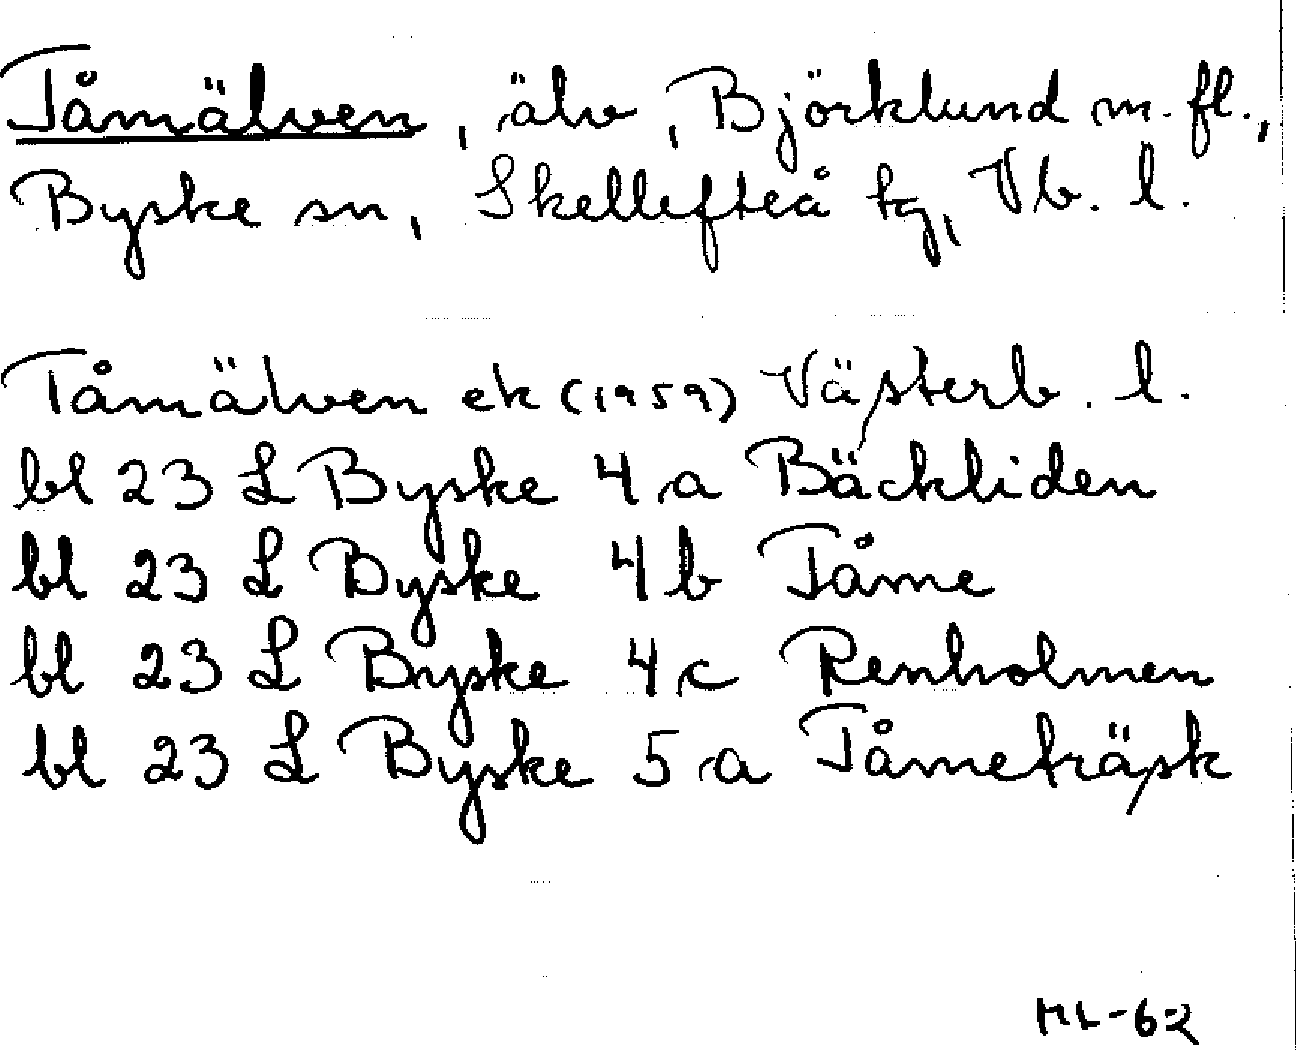 Tåmälven, älv, Björklund m. fl.,
Byske sn, Skellefteå tg, Vb. l.
Tåmälven ek (1959) Västerb. l.
bl 23 L Byske 4 a Bäckliden
bl 23 L Byske 4 b Tåme
bl 23 L Byske 4 c Renholmen
bl 23 L Byske 5 a Tåmeträsk
ML-62